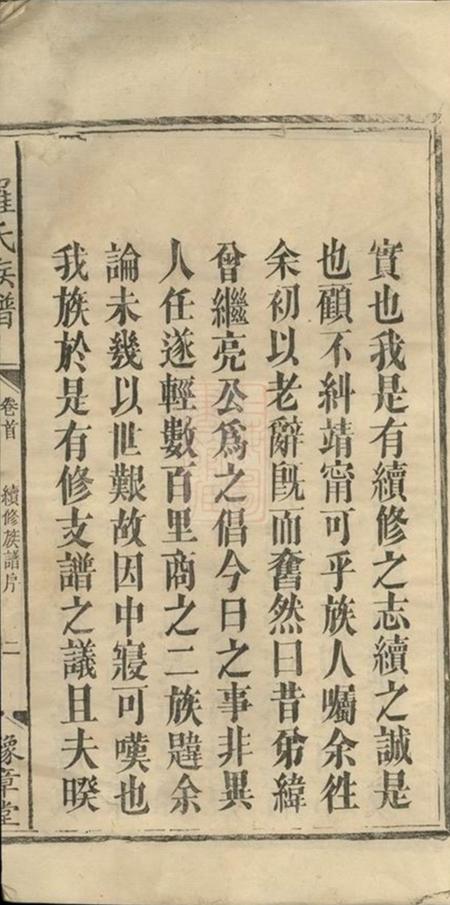 實也我是有續修之志續之誠是
也顧不糾靖甯可乎族人囑余徃
余初以老辭旣而奮然曰昔弟緯
曾繼亮公爲之倡今日之事非異
人任遂輕數百里商之二族韙余
論未幾以世艱故因中寢可嘆也
我族於是有修支譜之議且夫暌
羅氏族譜
卷首
續修族譜序
二
豫章堂